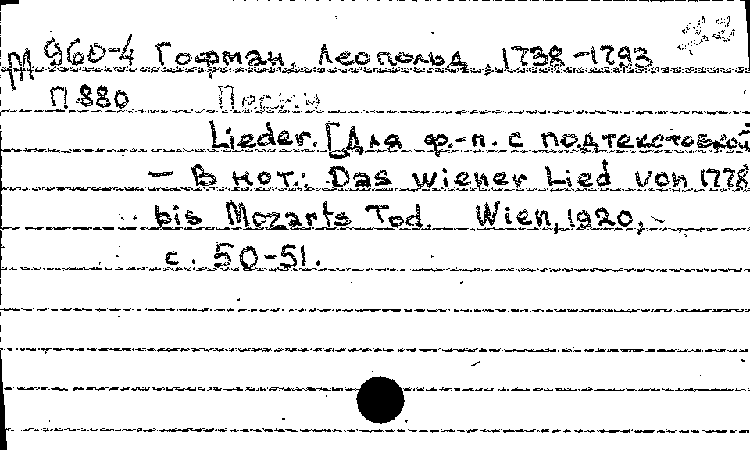 22
М 960-4 Гофман, Леопольд, 1738-1793
П 880 Песни
Lieder. [Для ф.-п. с подтекстовкой
— В кот.: Das wiener Lied von 1778
bis Mozarts Tod. Wien, 1920,
с. 50-51.